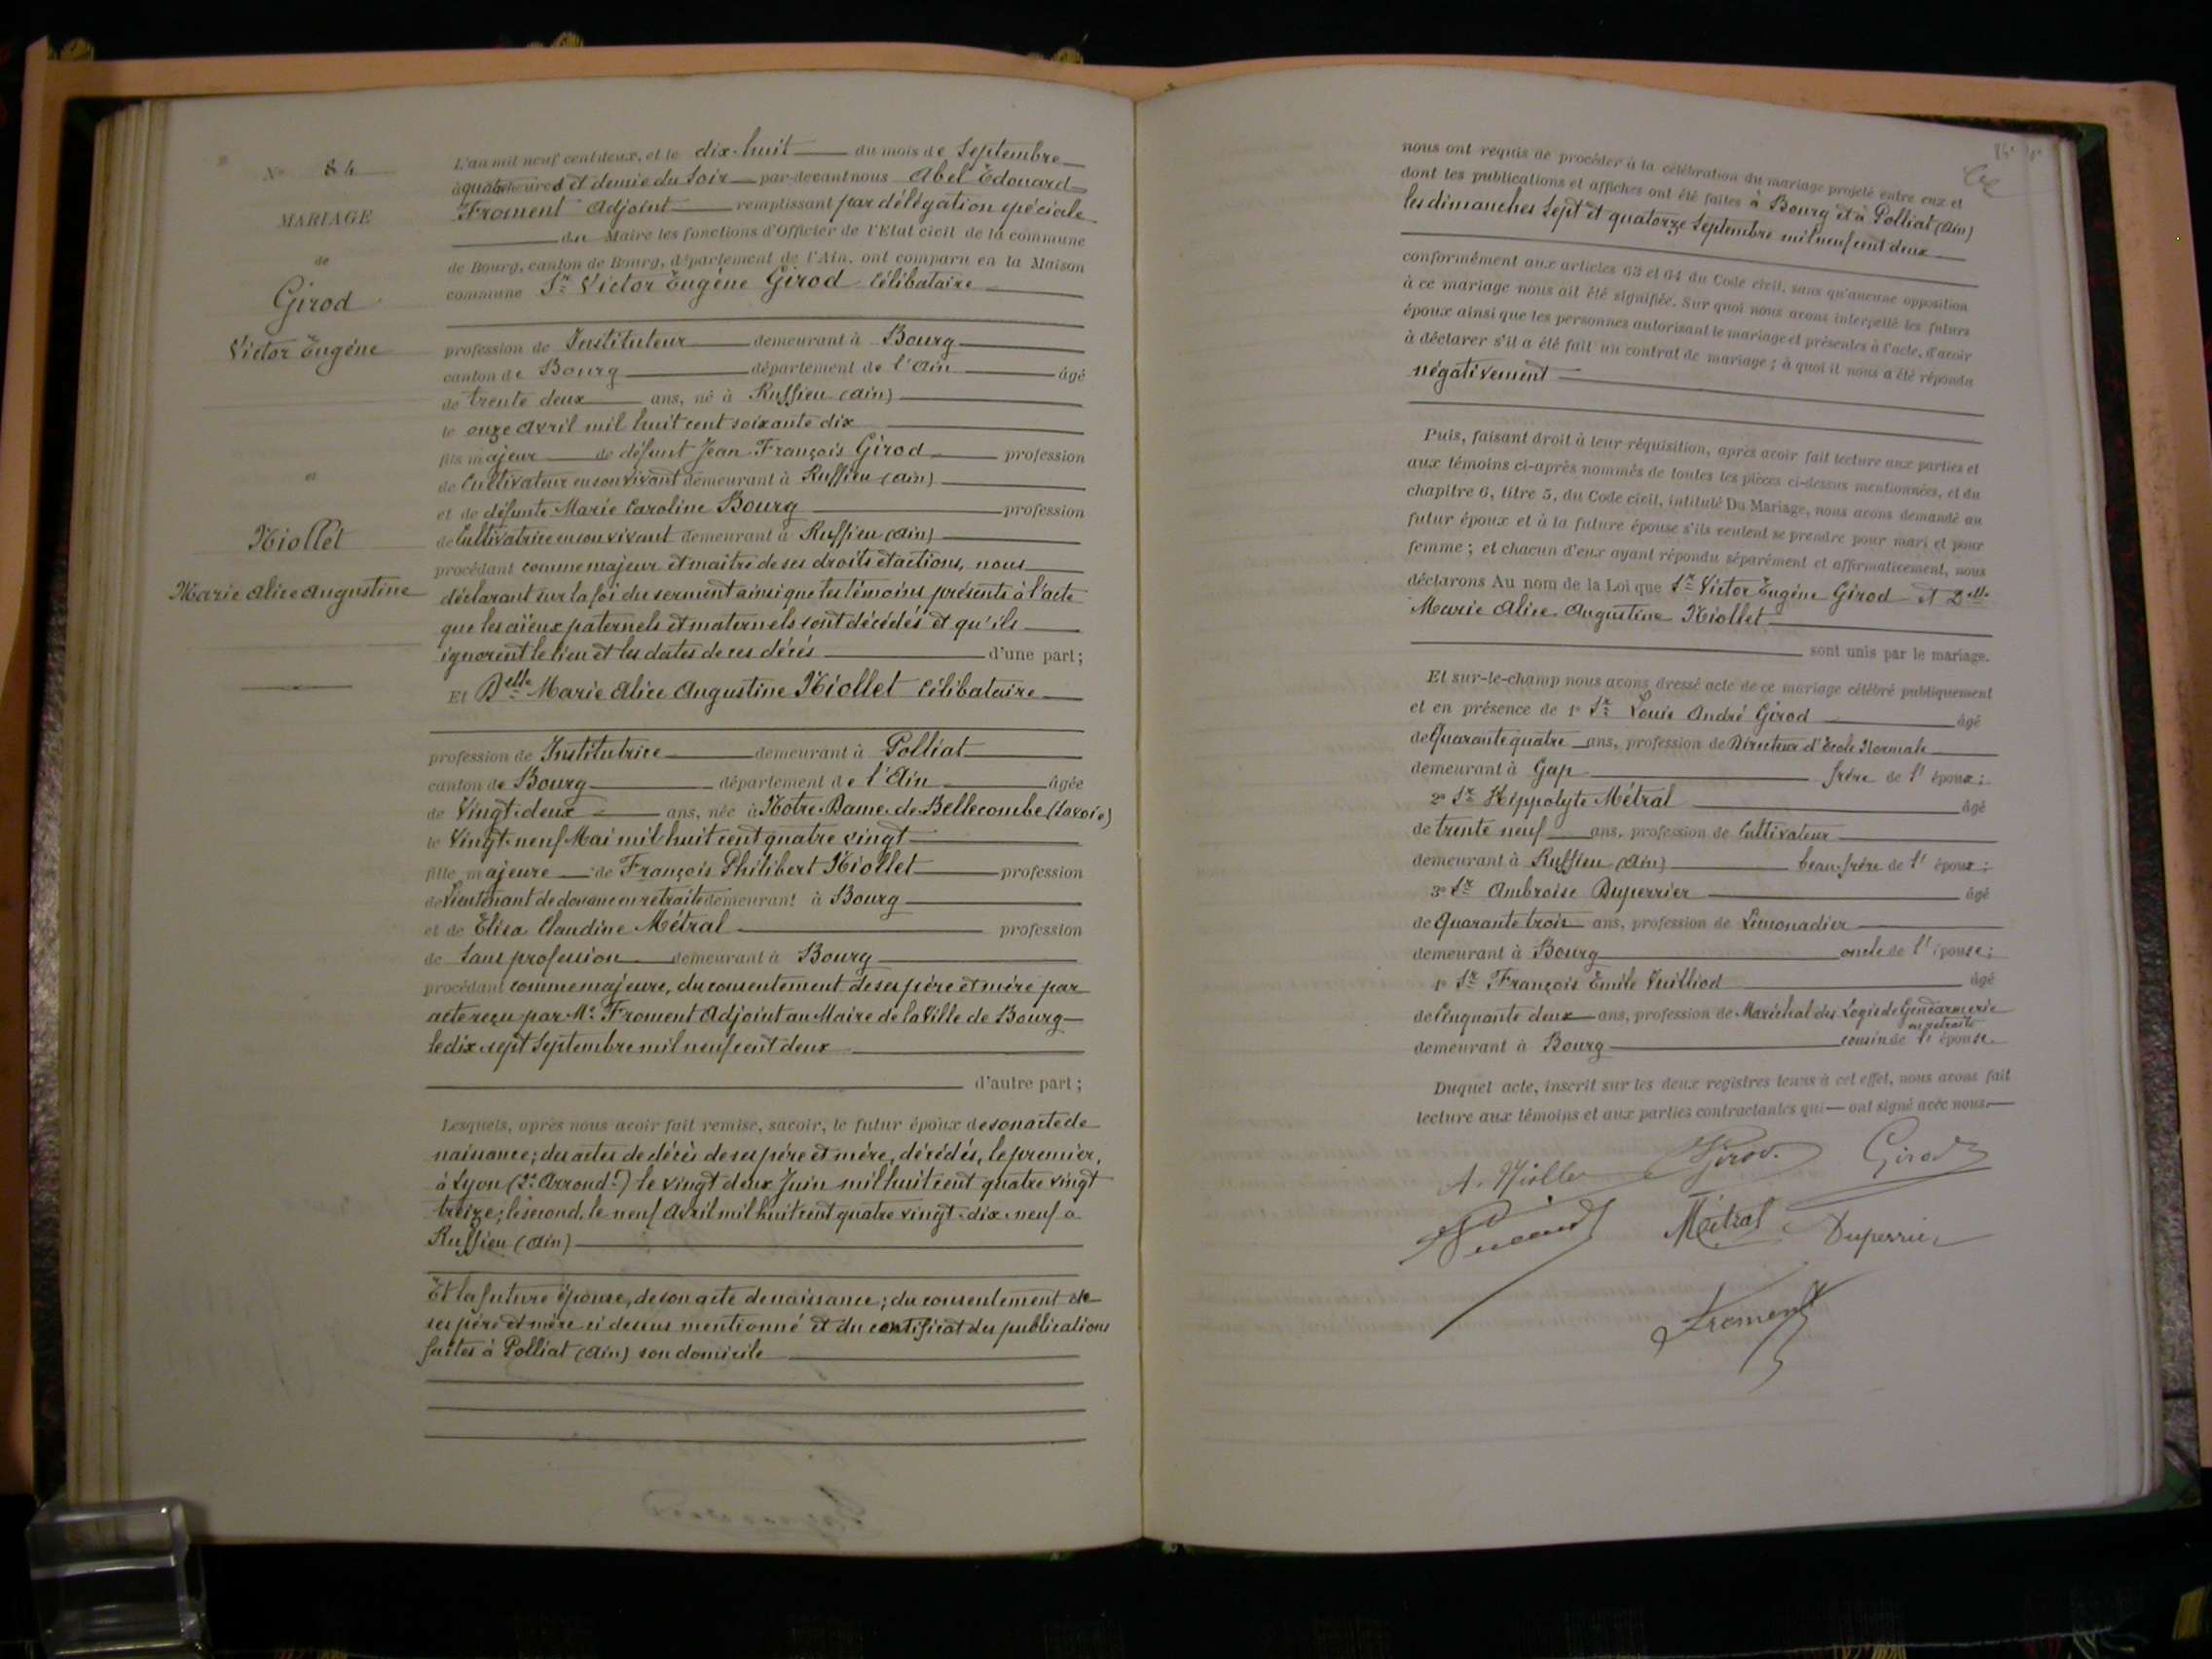 N° 84
MARIAGE
de
Girod
Victor Eugène
et
Niollet
Marie Alice Augustine
L'an mil neuf cent deux, et le dix-huit du mois de Septembre
à quatre heures et demie du Soir par-devant nous Abel Edouard
Froment Adjoint remplissant par délégation spéciale
du Maire les fonctions d'Officier de l'Etat civil de la commune
de Bourg, canton de Bourg, département de l'Ain, ont comparu en la Maison
commune Sr Victor Eugène Girod Célibataire
profession de Instituteur demeurant à Bourg
canton de Bourg département de l'Ain âgé
de trente deux ans, né à Ruffieu (Ain)
le onze Avril mil huit cent soixante dix
fils majeur de défunt Jean-François Girod profession
de Cultivateur en son vivant demeurant à Ruffieu (Ain)
et de défunte Marie Caroline Bourg profession
de Cultivatrice en son vivant demeurant à Ruffieu (Ain)
procédant comme majeur et maître de ses droits et actions, nous
déclarant sur la foi du serment ainsi que les témoins présents à l'acte
que les aïeux paternels et maternels sont décédés et qu'ils
ignorent le lieu et les dates de ces décès d'une part;
Et Delle Marie Alice Augustine Niollet Célibataire
profession de Institutrice demeurant à Polliat
canton de Bourg département de l'Ain âgée
de Vingt-deux ans, née à Notre-Dame-de-Bellecombe (Savoie)
le Vingt-neuf Mai mil huit cent quatre vingt
fille majeure de François Philibert Niollet profession
de Lieutenant de douane en retraite demeurant à Bourg
et de Elisa Claudine Métral profession
de Sans profession demeurant à Bourg
procédant comme majeure, du consentement de ses père et mère par
acte reçu par Mr Froment Adjoint au Maire de la Ville de Bourg
le dix-sept Septembre mil neuf cent deux
d'autre part;
Lesquels, après nous avoir fait remise, savoir, le futur époux de son acte de
naissance; des actes de décès de ses père et mère, décédés, le premier,
à Lyon (2e Arrondt) le vingt deux Juin mil huit cent quatre vingt
treize; le second, le neuf Avril mil huit cent quatre vingt-dix-neuf à
Ruffieu (Ain)
Et la future épouse, de son acte de naissance; du consentement de
ses père et mère ci dessus mentionné et du certificat des publications
faites à Polliat (Ain) son domicile
nous ont requis de procéder à la célébration du mariage projeté entre eux et
dont les publications et affiches ont été faites à Bourg et à Polliat (Ain)
les dimanches Sept et quatorze Septembre mil neuf cent deux
conformément aux articles 63 et 64 du Code civil, sans qu'aucune opposition
à ce mariage nous ait été signifiée. Sur quoi nous avons interpellé les futurs
époux ainsi que les personnes autorisant le mariage et présentes à l'acte, d'avoir
à déclarer s'il a été fait un contrat de mariage; à quoi il nous a été répondu
négativement
Puis, faisant droit à leur réquisition, après avoir fait lecture aux parties et
aux témoins ci-après nommés de toutes les pièces ci-dessus mentionnées, et du
chapitre 6, titre 5, du Code civil, intitulé Du Mariage, nous avons demandé au
futur époux et à la future épouse s'ils veulent se prendre pour mari et pour
femme; et chacun d'eux ayant répondu séparément et affirmativement, nous
déclarons Au nom de la Loi que Sr Victor Eugène Girod et Delle
Marie Alice Augustine Niollet
sont unis par le mariage.
Et sur-le-champ nous avons dressé acte de ce mariage célébré publiquement
et en présence de 1° Sr Louis André Girod âgé
de Quarante quatre ans, profession de Directeur d'Ecole Normale
demeurant à Gap frère de l'époux;
2° Sr Hippolyte Métral âgé
de trente neuf ans, profession de Cultivateur
demeurant à Ruffieu (Ain) beau-frère de l'époux;
3° Sr Ambroise Duperrier âgé
de Quarante trois ans, profession de Limonadier
demeurant à Bourg oncle de l'épouse;
4° Sr François Emile Vuilliod âgé
de Cinquante deux ans, profession de Maréchal des Logis de Gendarmerie
en retraite
demeurant à Bourg cousin de l'épouse.
Duquel acte, inscrit sur les deux registres tenus à cet effet, nous avons fait
lecture aux témoins et aux parties contractantes qui ont signé avec nous.
A. Niollet Girod. Girod
Métral Duperrier
Froment